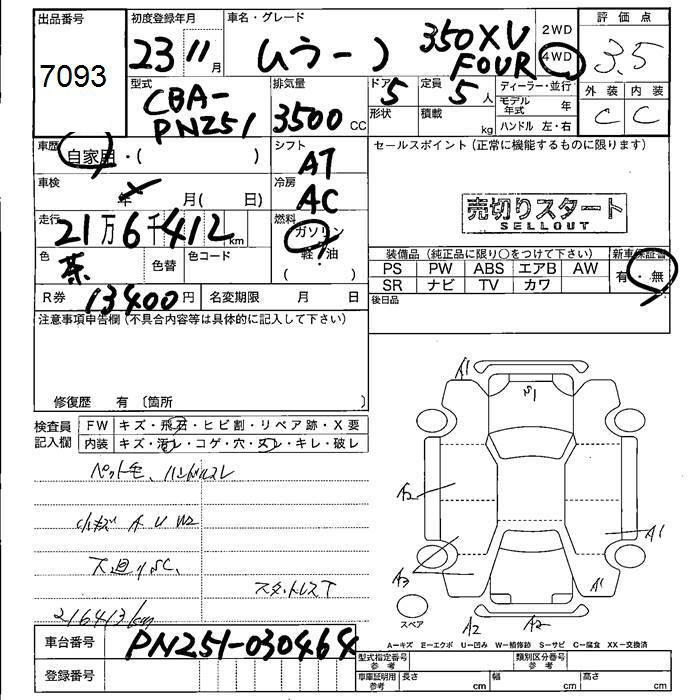 出品番号
7093
初度登録年月
23 11月
車名・グレード
ムラーノ 350XV FOUR
2WD
4WD
評価点
3.5
外装 内装
C C
型式
CBA-PN251
排気量
3500CC
ドア
5
形状
定員
5人
積載
kg
ディーラー・並行
モデル年式 年
ハンドル 左・右
車歴
自家用・( )
シフト
AT
セールスポイント(正常に機能するものに限ります)
売切りスタート
SELLOUT
車検
年 月( 日)
冷房
AC
走行
21万6千412km
燃料
ガソリン
軽油
( )
色
茶
色替
色コード
装備品(純正品に限り〇をつけて下さい)
新車保証書
PS PW ABS エアB AW
SR ナビ TV カワ
有・無
R券 13400円
名変期限 月 日
後日品
注意事項申告欄(不具合内容等は具体的に記入して下さい)
修復歴 有〔箇所 〕
検査員記入欄
FW キズ・飛石・ヒビ割・リペア跡・X要
内装 キズ・汚レ・コゲ・穴・スレ・キレ・破レ
ペット毛、ハンドルスレ
小キズ A U W2
下廻りSC、
スタットレスT
216413km
A1
S1
A2
A1
A3
A1
A2
A2
スペア
A−キズ E−エクボ U−凹み W−補修跡 S−サビ C−腐食 XX−交換済
車台番号
PN251-030464
登録番号
型式指定番号 参考
類別区分番号 参考
車庫証明用 参考
長さ cm
幅 cm
高さ cm